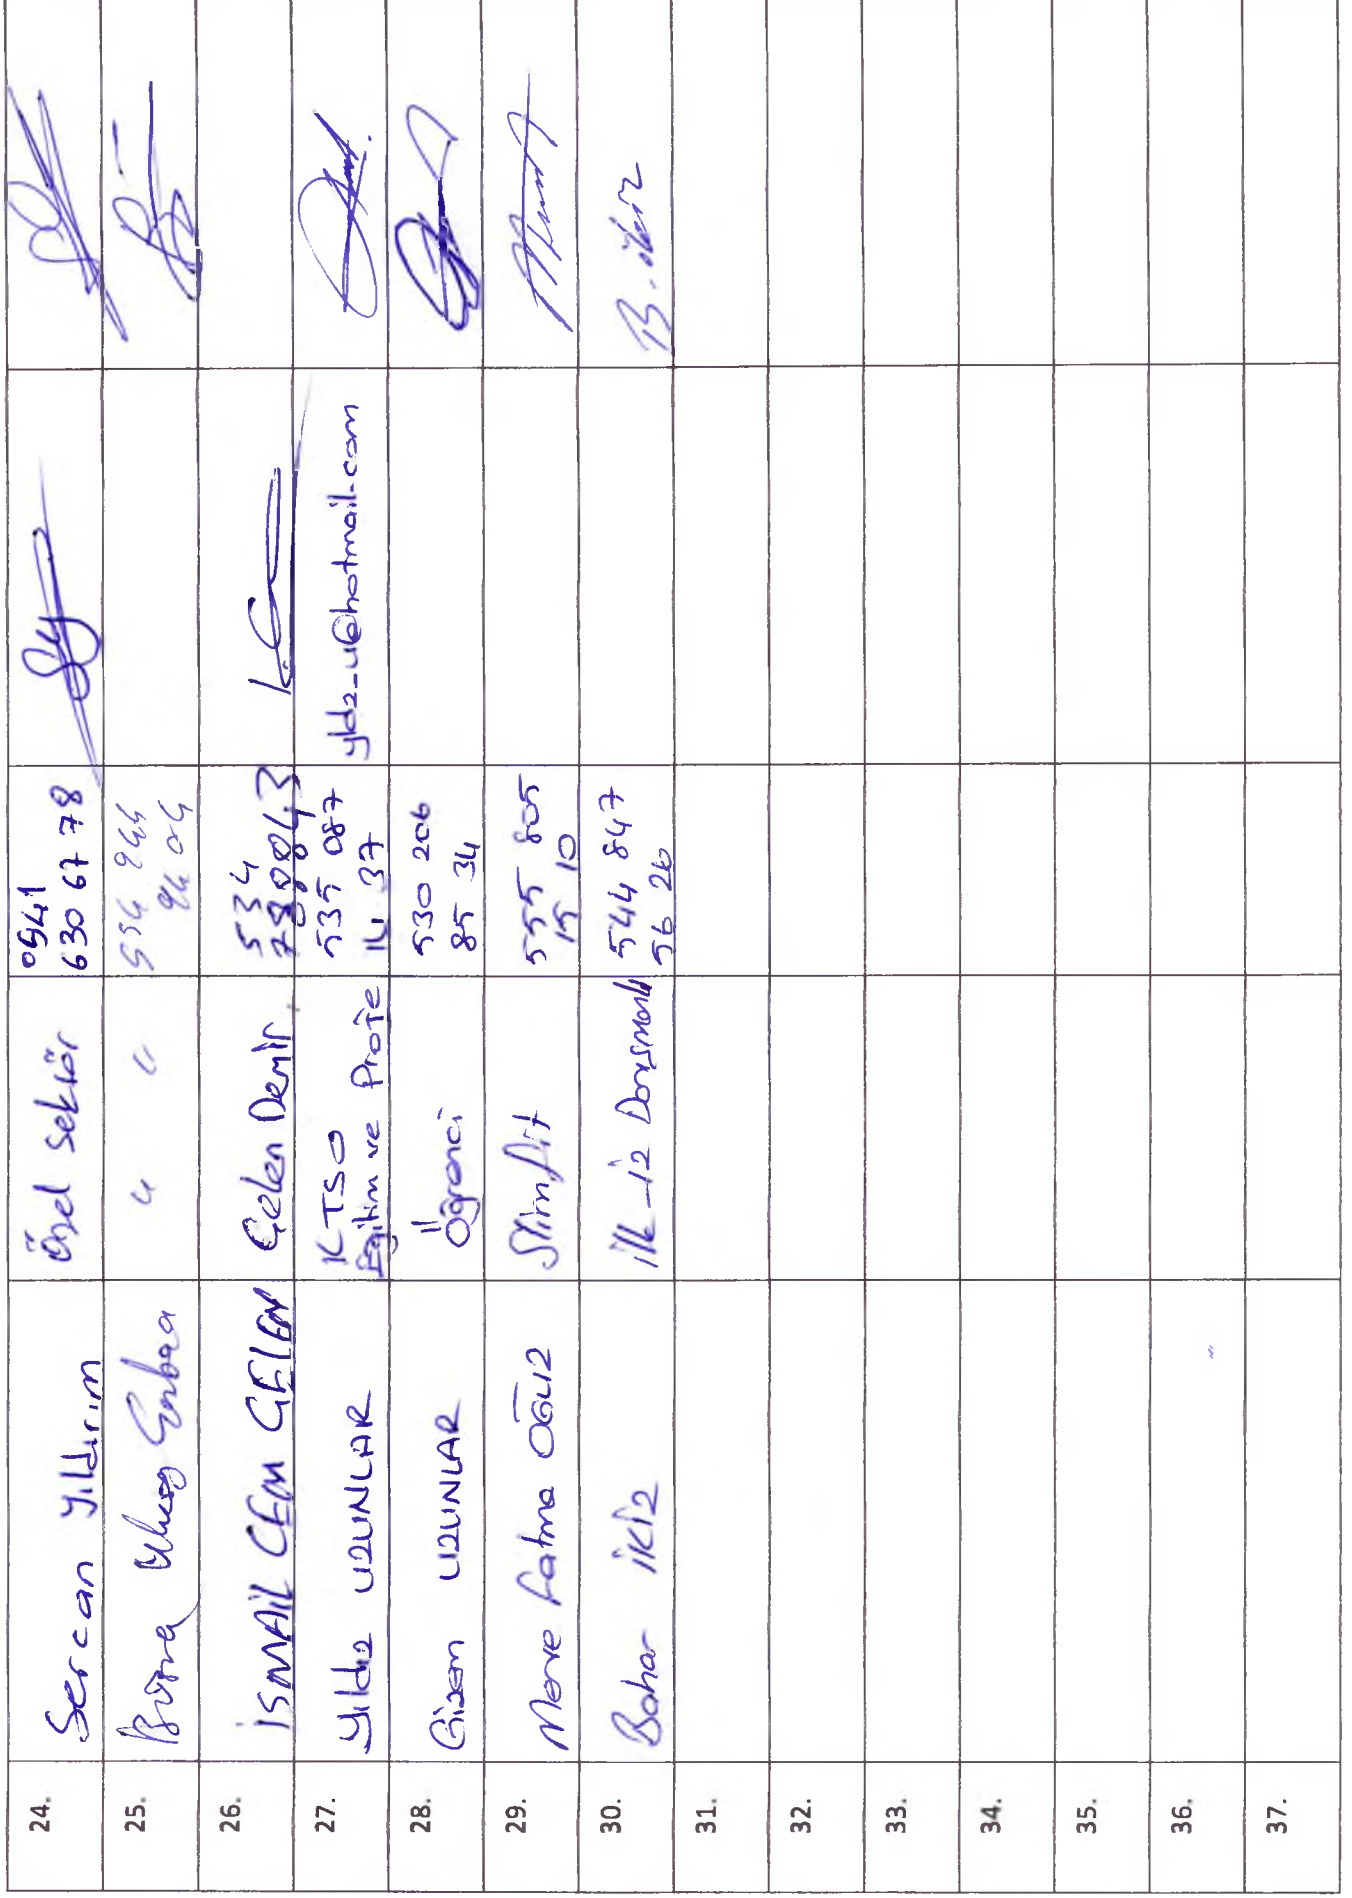 24. Sercan Yıldırım Özel Sektör 0541
630 67 78
25. " " 554 944
94 04
26. İSMAİL CEM GELEN Gelen Demir 534
7988043
27. Yıldız UZUNLAR KTSO
Eğitim ve Proje 535 087
14 37 yldz_u@hotmail.com
28. Gizem UZUNLAR Öğrenci 530 206
85 34
29. Merve Fatma OĞUZ Slimfit 555 805
15 10
30. Bahar İKİZ 544 847
56 26 B. ikiz
31.
32.
33.
34.
35.
36.
37.